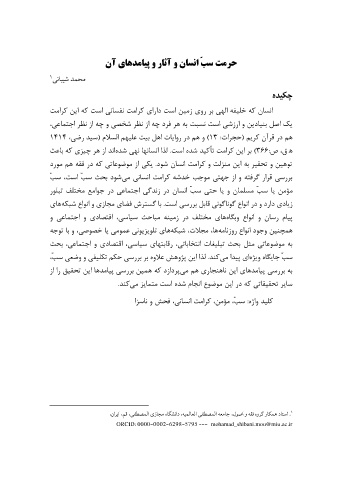 حرمت سبّ انسان و آثار و پیامدهای آن
محمد شیبانی۱
چکیده
انسان که خلیفه الهی بر روی زمین است دارای کرامت نفسانی است که این کرامت
یک اصل بنیادین و ارزشی است نسبت به هر فرد چه از نظر شخصی و چه از نظر اجتماعی،
هم در قرآن کریم (حجرات: ۱۳) و هم در روایات اهل بیت علیهم السلام (سید رضی، ۱۴۱۴
ه ق، ص:۳۶۶) بر این کرامت تأکید شده است. لذا انسانها نهی شده‌اند از هر چیزی که باعث
توهین و تحقیر به این منزلت و کرامت انسان شود. یکی از موضوعاتی که در فقه هم مورد
بررسی قرار گرفته و از جهتی موجب خدشه کرامت انسانی می‌شود بحث سبّ است، سبّ
مؤمن یا سبّ مسلمان و یا حتی سبّ انسان در زندگی اجتماعی در جوامع مختلف تبلور
زیادی دارد و در انواع گوناگونی قابل بررسی است. با گسترش فضای مجازی و انواع شبکه‌های
پیام رسان و انواع وبگاه‌های مختلف در زمینه مباحث سیاسی، اقتصادی و اجتماعی و
همچنین وجود انواع روزنامه‌ها، مجلات، شبکه‌های تلویزیونی عمومی یا خصوصی، و با توجه
به موضوعاتی مثل بحث تبلیغات انتخاباتی، رقابتهای سیاسی، اقتصادی و اجتماعی، بحث
سبّ جایگاه ویژه‌ای پیدا می‌کند. لذا این پژوهش علاوه بر بررسی حکم تکلیفی و وضعی سبّ،
به بررسی پیامدهای این ناهنجاری هم می‌پردازد که همین بررسی پیامدها این تحقیق را از
سایر تحقیقاتی که در این موضوع انجام شده است متمایز می‌کند.
کلید واژه: سبّ، مؤمن، کرامت انسانی، فحش و ناسزا
۱. استاد همکار گروه فقه و اصول، جامعه المصطفی العالمیه، دانشگاه مجازی المصطفی، قم، ایران،
ORCID: 0000-0002-6298-5795 --- mohamad_shibani.mou@miu.ac.ir